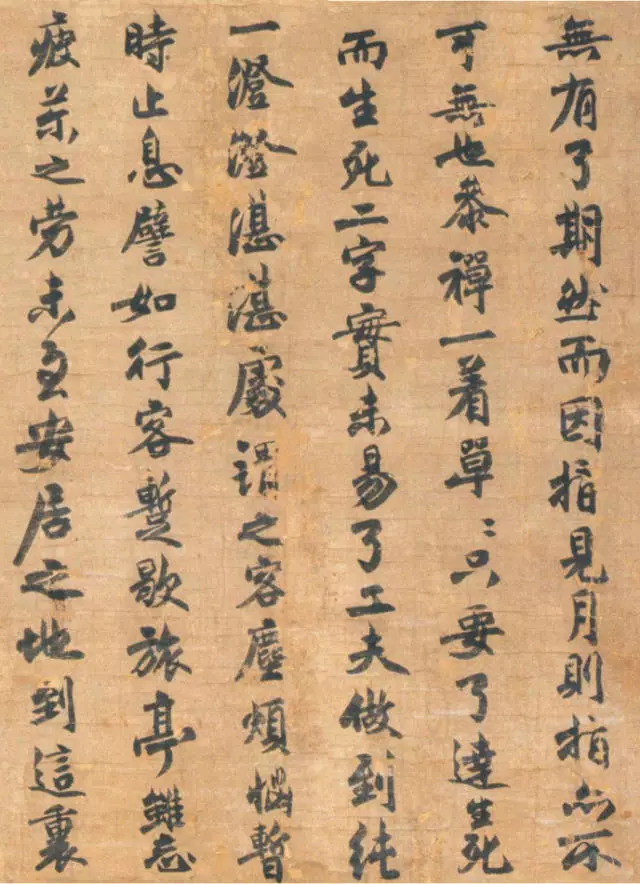 無有了期然而因指見月則指亦不
可無也叅禪一着單〻只要了達生死
而生死二字實未易了工夫做到純
一澄澄湛湛處謂之客塵煩惱暫
時止息譬如行客蹔歇旅亭雖忘
疲苶之勞未至安居之地到這裏